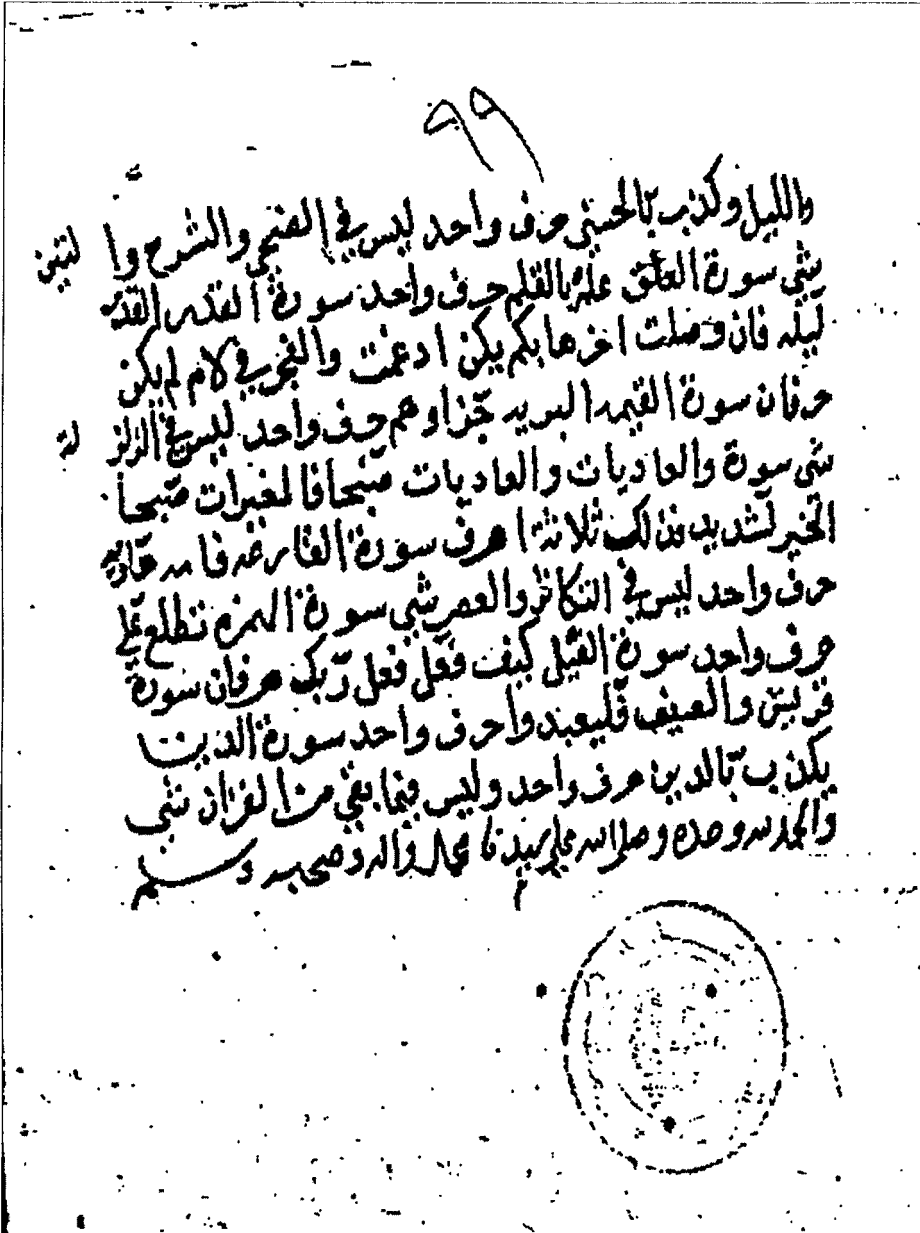 ٩٩
والليل وكذب بّالحسنى حرف واحد ليس في الضحى والشرح والتين
شي سورة العلق علّم بالقلم حرف واحد سورة القدر القدر
ليله فان وصلت اخرها بكم يكن ادغمت والفجر في لام لم يكن
حرفان سورة القيمه البريه جّزاوهم حرف واحد ليس في الزلزلة
شي سورة والعاديات والعاديات صّبحا فالمغيرات صّبحا
الخير لّشديد فذلك ثلاثة احرف سورة القارعه فامه هّاويه
حرف واحد ليس في التكاثر والعصر شي سورة الهمزه تطلع عّلى
حرف واحد سورة الفيل كيف فّعل فعل رّبك حرفان سورة
قريش والصيف فّليعبدوا حرف واحد سورة الدين
يكذب بّالدين حرف واحد وليس فيما بقي من القران شي
والحمد لله وحده وصلى الله على سيدنا محمد واله وصحبه وسلم
م